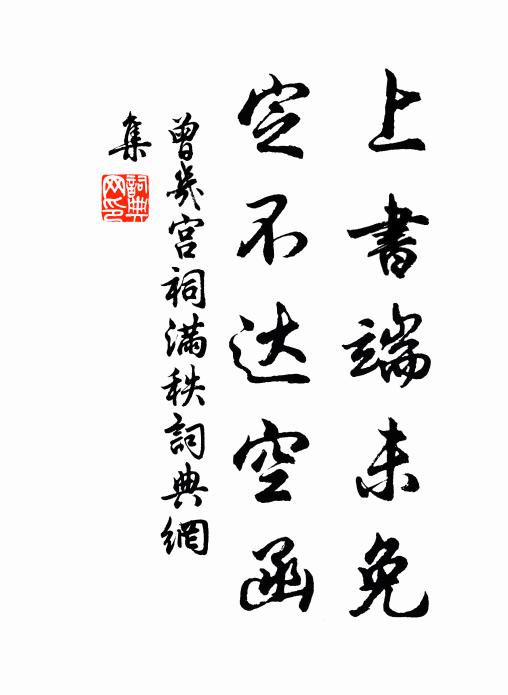 上書端未免
定不达空函
曾幾宫祠满秩詞典網
集
詞典網印